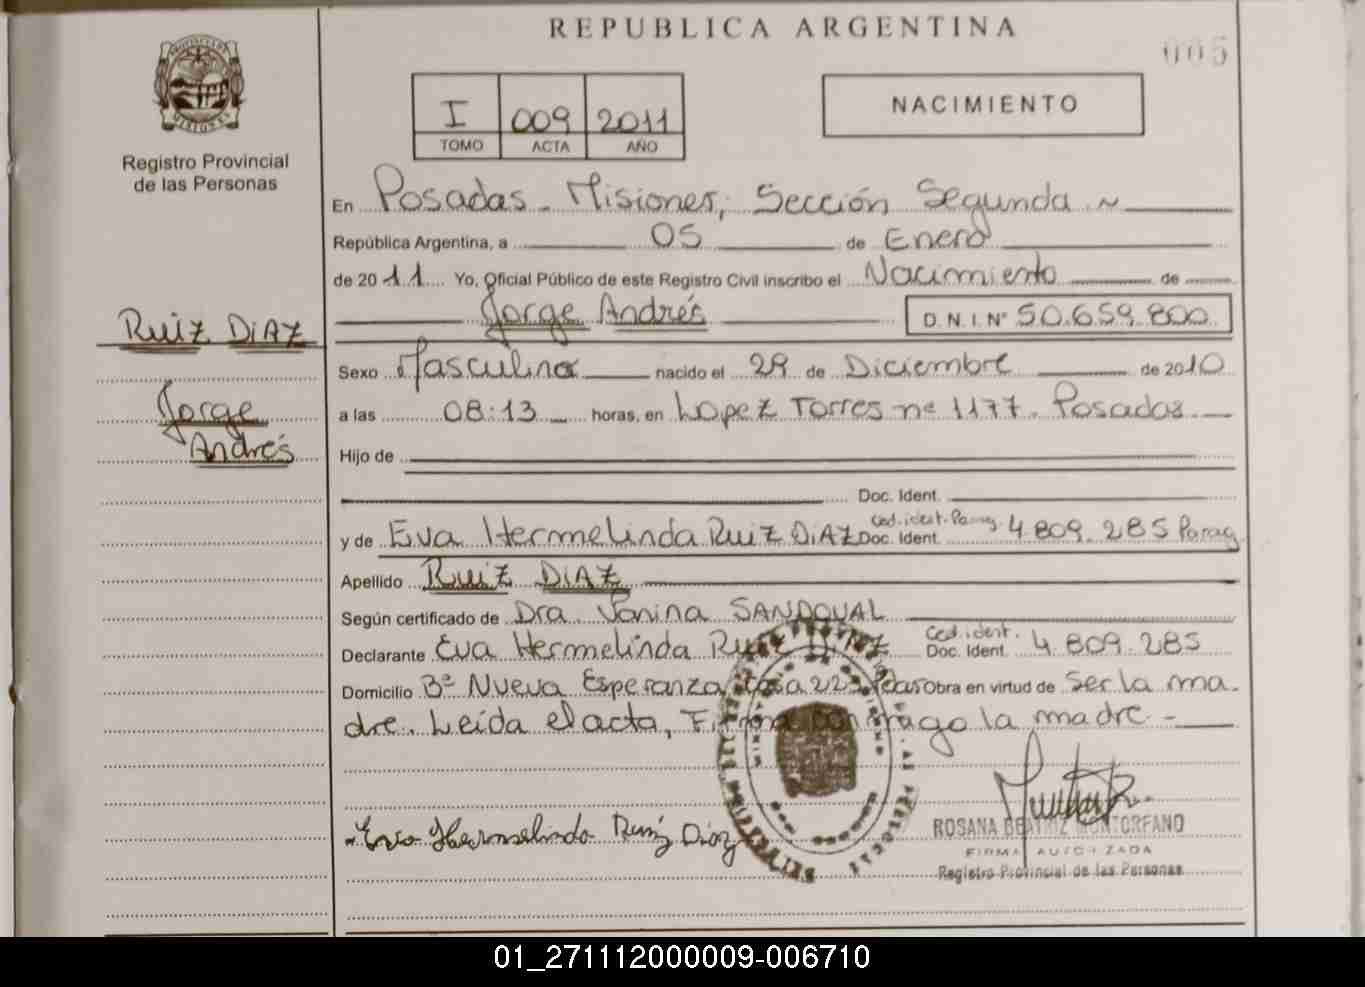 REPUBLICA ARGENTINA
005
PROVINCIA DE
MISIONES
Registro Provincial
de las Personas
I 009 2011
TOMO ACTA AÑO
NACIMIENTO
En Posadas - Misiones, Sección Segunda
República Argentina, a 05 de Enero
de 2011 Yo, Oficial Público de este Registro Civil inscribo el Nacimiento de
Jorge Andrés D.N.I.Nº 50.659.800
RUIZ DIAZ
Jorge
Andrés
Sexo Masculino nacido el 29 de Diciembre de 2010
a las 08:13 horas, en Lopez Torres nº 1177. Posadas
Hijo de
Doc. Ident.
y de Eva Hermelinda RUIZ DIAZ Doc. Ident. Ced. ident. Parag. 4.809.285 Parag
Apellido RUIZ DIAZ
Según certificado de Dra. Vanina SANDOVAL
Declarante Eva Hermelinda Ruiz Diaz Ced. ident. Doc. Ident. 4.809.285
Domicilio Bº Nueva Esperanza Casa 225 Obra en virtud de Ser la ma-
dre. Leída el acta, Firma conmigo la madre -
Eva Hermelinda Ruiz Diaz
ROSANA BEATRIZ MONTORFANO
FIRMA AUTORIZADA
Registro Provincial de las Personas
01_271112000009-006710